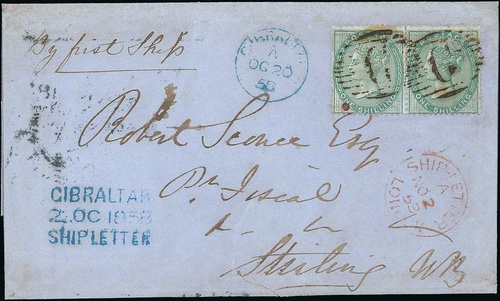 By first Ship
GIBRALTAR
A
OC 20
58
G
G
ONE SHILLING
ONE SHILLING
Robert Sconce Esq
Pr Fiscal
Stirling NB
GIBRALTAR
OC 1858
SHIPLETTER
SHIP LETTER
A
NO 2
58
LONDON